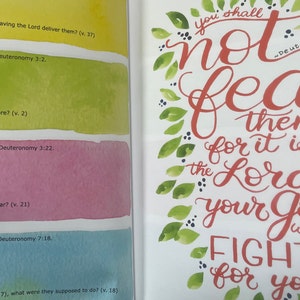 aving the Lord deliver them? (v. 37)
Deuteronomy 3:2.
ore? (v. 2)
Deuteronomy 3:22.
ar? (v. 21)
Deuteronomy 7:18.
7), what were they supposed to do? (v. 18)
you shall
not
~Deut
fea
them
for it is
the Lord
your G
FIGHT
for yo